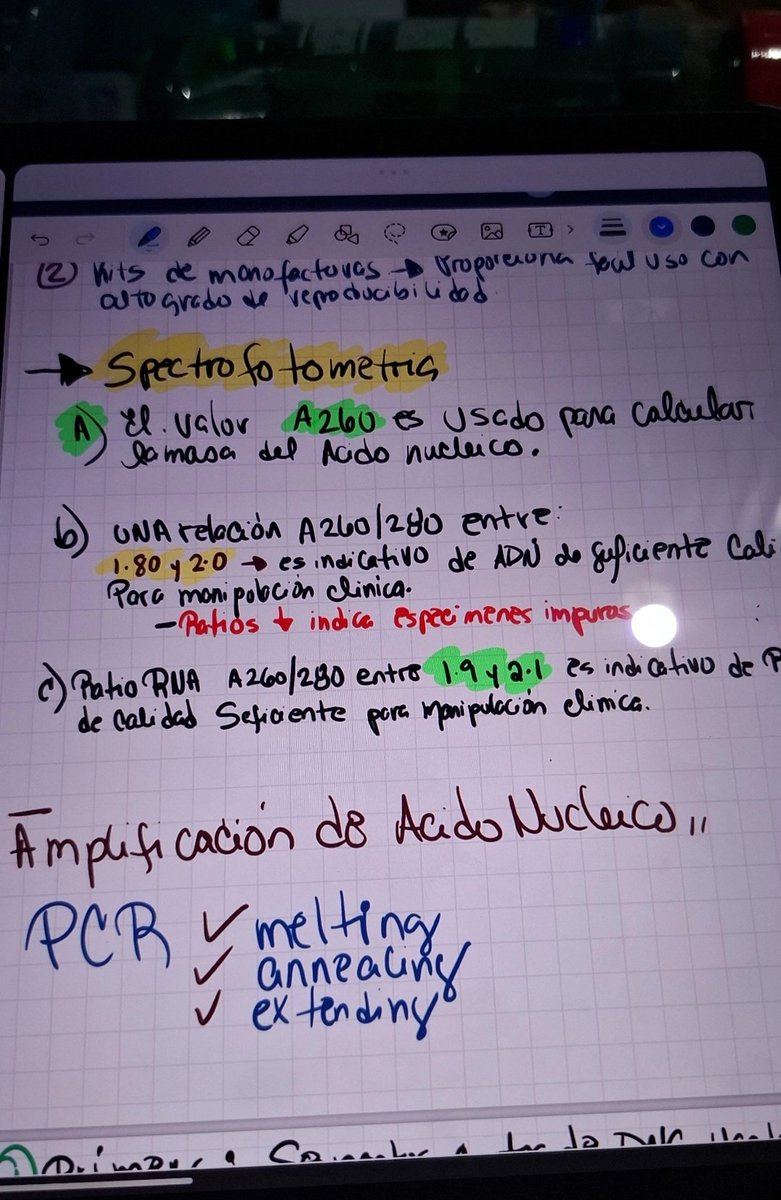 (2) Kits de monofacturas → Proporciona facil uso con
alto grado de reproducibilidad.
→ Spectrofotometria
A) El valor A260 es usado para calcular
la masa del Acido nucleico.
b) UNA relación A260/280 entre:
1.80 y 2.0 → es indicativo de ADN de suficiente Cali
Para manipulación clinica.
- Ratios ↓ indica especimenes impuros
c) Ratio RNA A260/280 entre 1.9 y 2.1 es indicativo de
de calidad Seficiente para manipulación clinica.
Amplificación de Acido Nucleico
PCR ✓ melting
✓ annealing
✓ extending